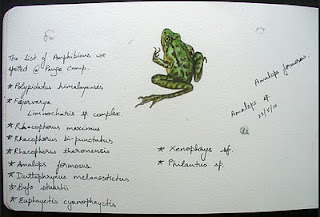 The list of Amphibians we
spotted @ Pange Camp.
* Polypedatus himalayanses
* Fejervarya
Limnocharis sp complex.
* Rhacophorus maximus
* Rhacophorus bi-punctatus
* Rhacophorus tharonensis
* Amolops formosus
* Duttaphrynus melanostictus
* Bufo stuarti
* Euphyctis cyanophyctis
* Xenophrys sp.
* Philautus sp.
Amolops sp.
Amolops formosus